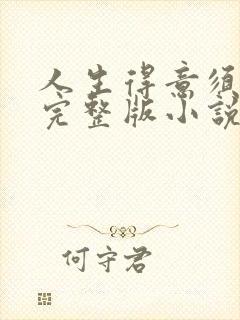 人生得意須
完整版小說
何守君